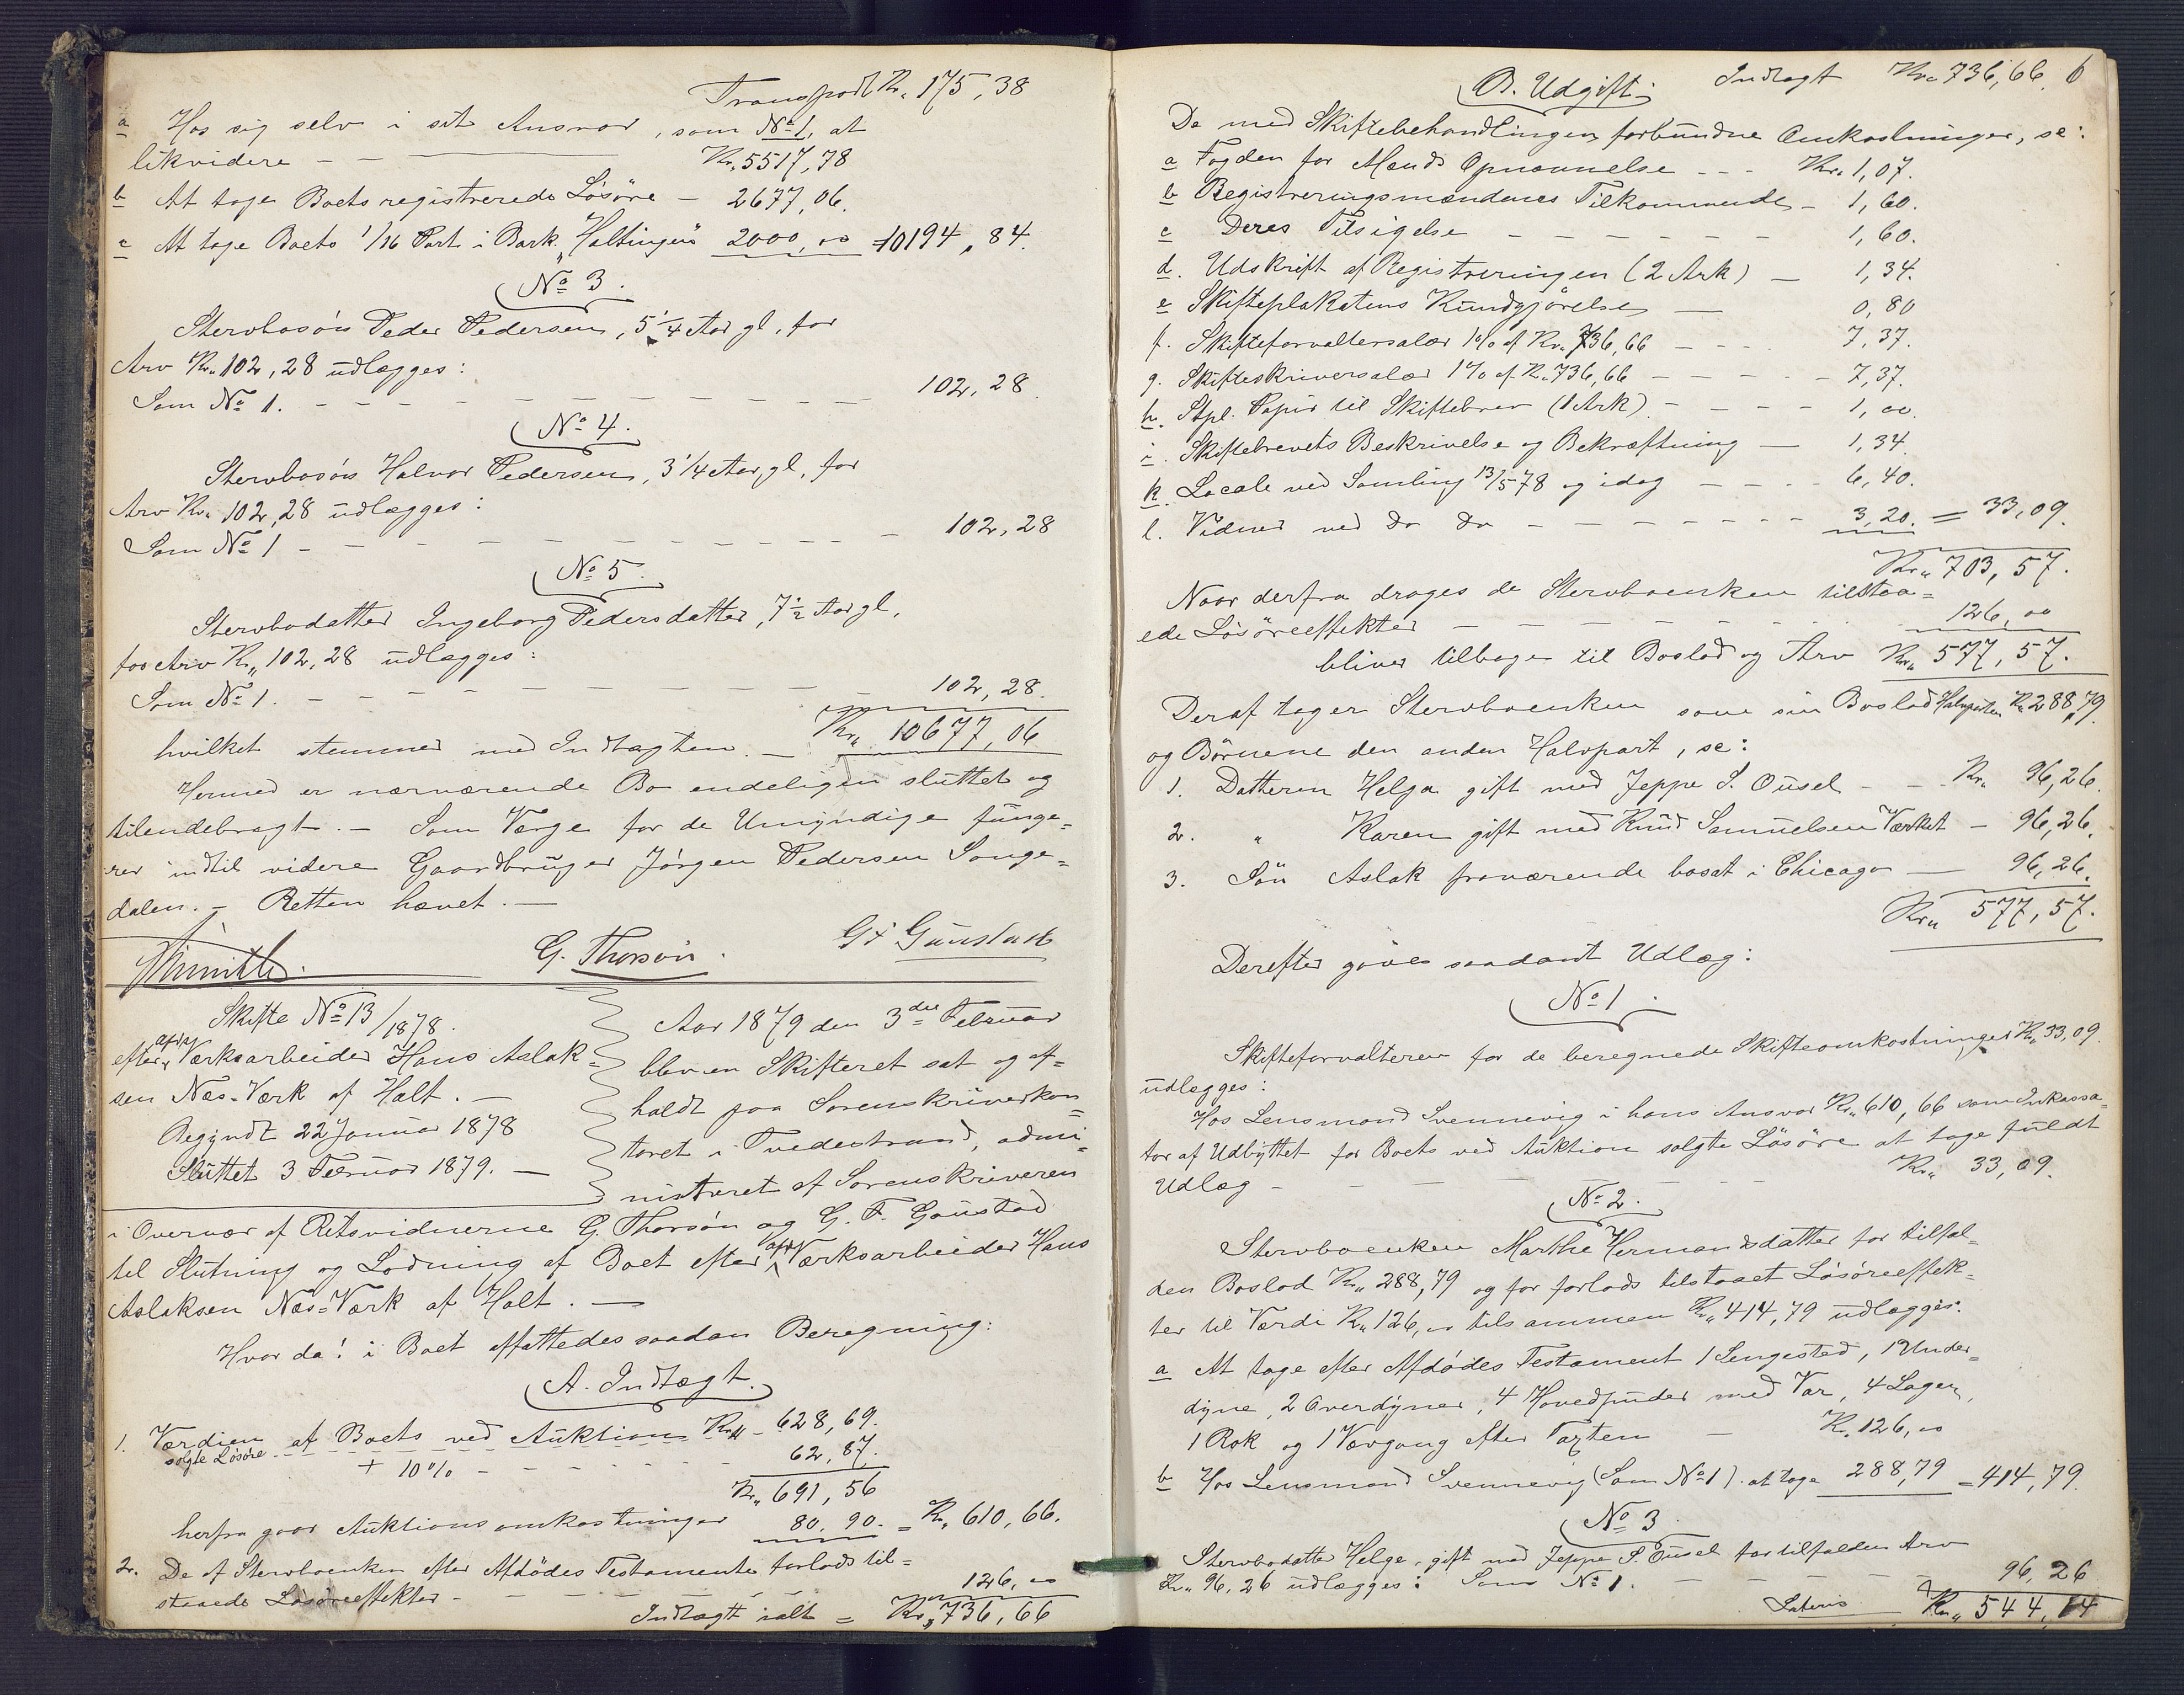 Transport Kr. 175,38
a Hos sig selv i sit Ansvar, som No 1, at
likvidere - - Kr. 5517,78
b At tage Boets registrerede Løsøre - 2677,06.
c At tage Boets 1/16 Part i Bark. "Haltingen" 2000,00 = 10194,84.
No 3.
Stervbosøn Peder Pedersen, 5 1/4 Aar gl, for
Arv Kr. 102,28 udlægges:
Som No 1. - - - - - - - - - - 102,28.
No 4.
Stervbosøn Halvor Pedersen, 3 1/4 Aar, gl, for
Arv Kr. 102,28 udlægges:
Som No 1 - - - - - - - - - - 102,28
No 5.
Stervbodatter Ingeborg Pedersdatter, 7 1/2 Aar gl,
for Arv Kr. 102,28 udlægges:
Som No 1. - - - - - - - - - - 102,28.
hvilket stemmer med Indtægten. - Kr. 10677,06
Hermed er nærværende Bo endeligen sluttet og
tilendebragt. - Som Værge for de Umyndige funge=
rer indtil videre Gaardbruger Jørgen Pedersen Songe=
dalen. - Retten hævet. -
G. Thorsøn. G F Gunstad
Skifte No 13/1878.
efter afdøde Værksarbeider Hans Aslak=
sen Næs-Værk af Holt. -
Begyndt 22 Januar 1878
Sluttet 3 Feruar 1879. -
Aar 1879 den 3die Februar
blev en Skifteret sat og af=
holdt paa Sorenskriverkon=
toret i Tvedestrand, admi=
nistreret af Sorenskriveren
i Overvær af Retsvidnerne G. Thorsøn og G. F. Gaustad
til Slutning og Lodning af Boet efter afdøde Værksarbeider Hans
Aslaksen Næs=Værk af Holt. -
Hvor da! i Boet affattedes saadan Beregning:
A. Indtægt.
1. Værdien af Boets ved Auktion Kr. 628,69.
solgte Løsøre - - -
+ 10% - - - - - - 62,87.
Kr. 691,56
herfra gaar Auktionsomkostninger 80,90. = Kr. 610,66.
2. De af Stervboenken efter Afdødes Testamente forlods til=
staaede Løsøreeffekter - - - - - 126,00
Indtægt ialt = Kr. 736,66
B. Udgift. Indtægt Kr. 736,66. 6
De med Skiftebehandlingen forbundne Omkostninger, se:
a Fogden for Mænds Opnævnelse - - - Kr. 1,07.
b Registreringsmændenes Tilkommende - 1,60.
c Deres Tilsigelse - - - - - - - 1,60.
d. Udskrift af Registreringen (2 Ark) - 1,34.
e Skifteplakatens Kundgjørelse - 0,80
f. Skifteforvaltersalær 1% af Kr. 736,66 - - - 7,37.
g. Skifteskriversalær 1% af Kr. 736,66 - - - - - 7,37.
h. Stpl. Papir til Skiftebrev (1 Ark) - - - - 1,00.
i. Skiftebrevets Beskrivelse og Bekræftning - 1,34.
k. Locale ved Samling 13/5 78 og idag - - - - 6,40.
l. Vidner ved Do Do - - - - - - - 3,20. = 33,09.
Kr. 703,57.
Naar derfra drages de Stervboenken tilstaa=
ede Løsøreeffekter - - - - - - - 126,00
bliver tilbage til Boslod og Arv Kr. 577,57.
Deraf tager Stervboenken som sin Boslod Halvparten Kr. 288,79
og Børnene den anden Halvpart, se:
1. Datteren Helga gift med Jeppe S. Ousel - - Kr. 96,26.
2. " Karen gift med Knud Samuelsen Værket - 96,26.
3. Søn Aslak fraværende bosat i Chicago - 96,26.
Kr. 577,57.
Derefter gives saadant Udlæg:
No 1.
Skifteforvalteren for de beregnede Skifteomkostninger Kr. 33,09.
udlægges:
Hos Lensmand Svennevig i hans Ansvar Kr. 610,66 som Inkassa=
tor af Udbyttet for Boets ved Auktion solgte Løsøre at tage fuldt
Udlæg - - - - - - - Kr. 33,09.
No 2.
Stervboenken Marthe Hermandsdatter for tilfal=
den Boslod Kr. 288,79 og for forlods tilstaaet Løsøreeffek=
ter til Værdi Kr. 126,00 tilsammen Kr. 414,79 udlægges:
a At tage efter Afdødes Testament 1 Sengested, 1 Under=
dyne, 2 Overdyner, 4 Hovedpuder med Var, 4 Lagen,
1 Rok og 1 Vævgang efter Taxten - Kr. 126,00
b Hos Lensmand Svennevig (Som No 1) at tage 288,79 = 414,79.
No 3.
Stervbodatter Helge, gift med Jeppe S. Ousel for tilfalden Arv
Kr. 96,26 udlægges: Som No 1. - - - - - 96,26
Lateris Kr. 544,14